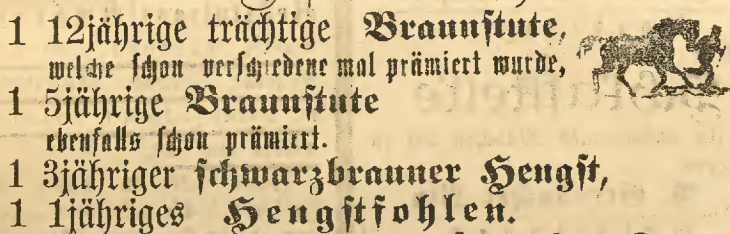 1 12jährige trächtige Braunstute,
welche schon verschiedene mal prämiert wurde,
1 5jährige Braunstute
ebenfalls schon prämiert.
1 3jähriger schwarzbrauner Hengst,
1 1jähriges Hengstfohlen.